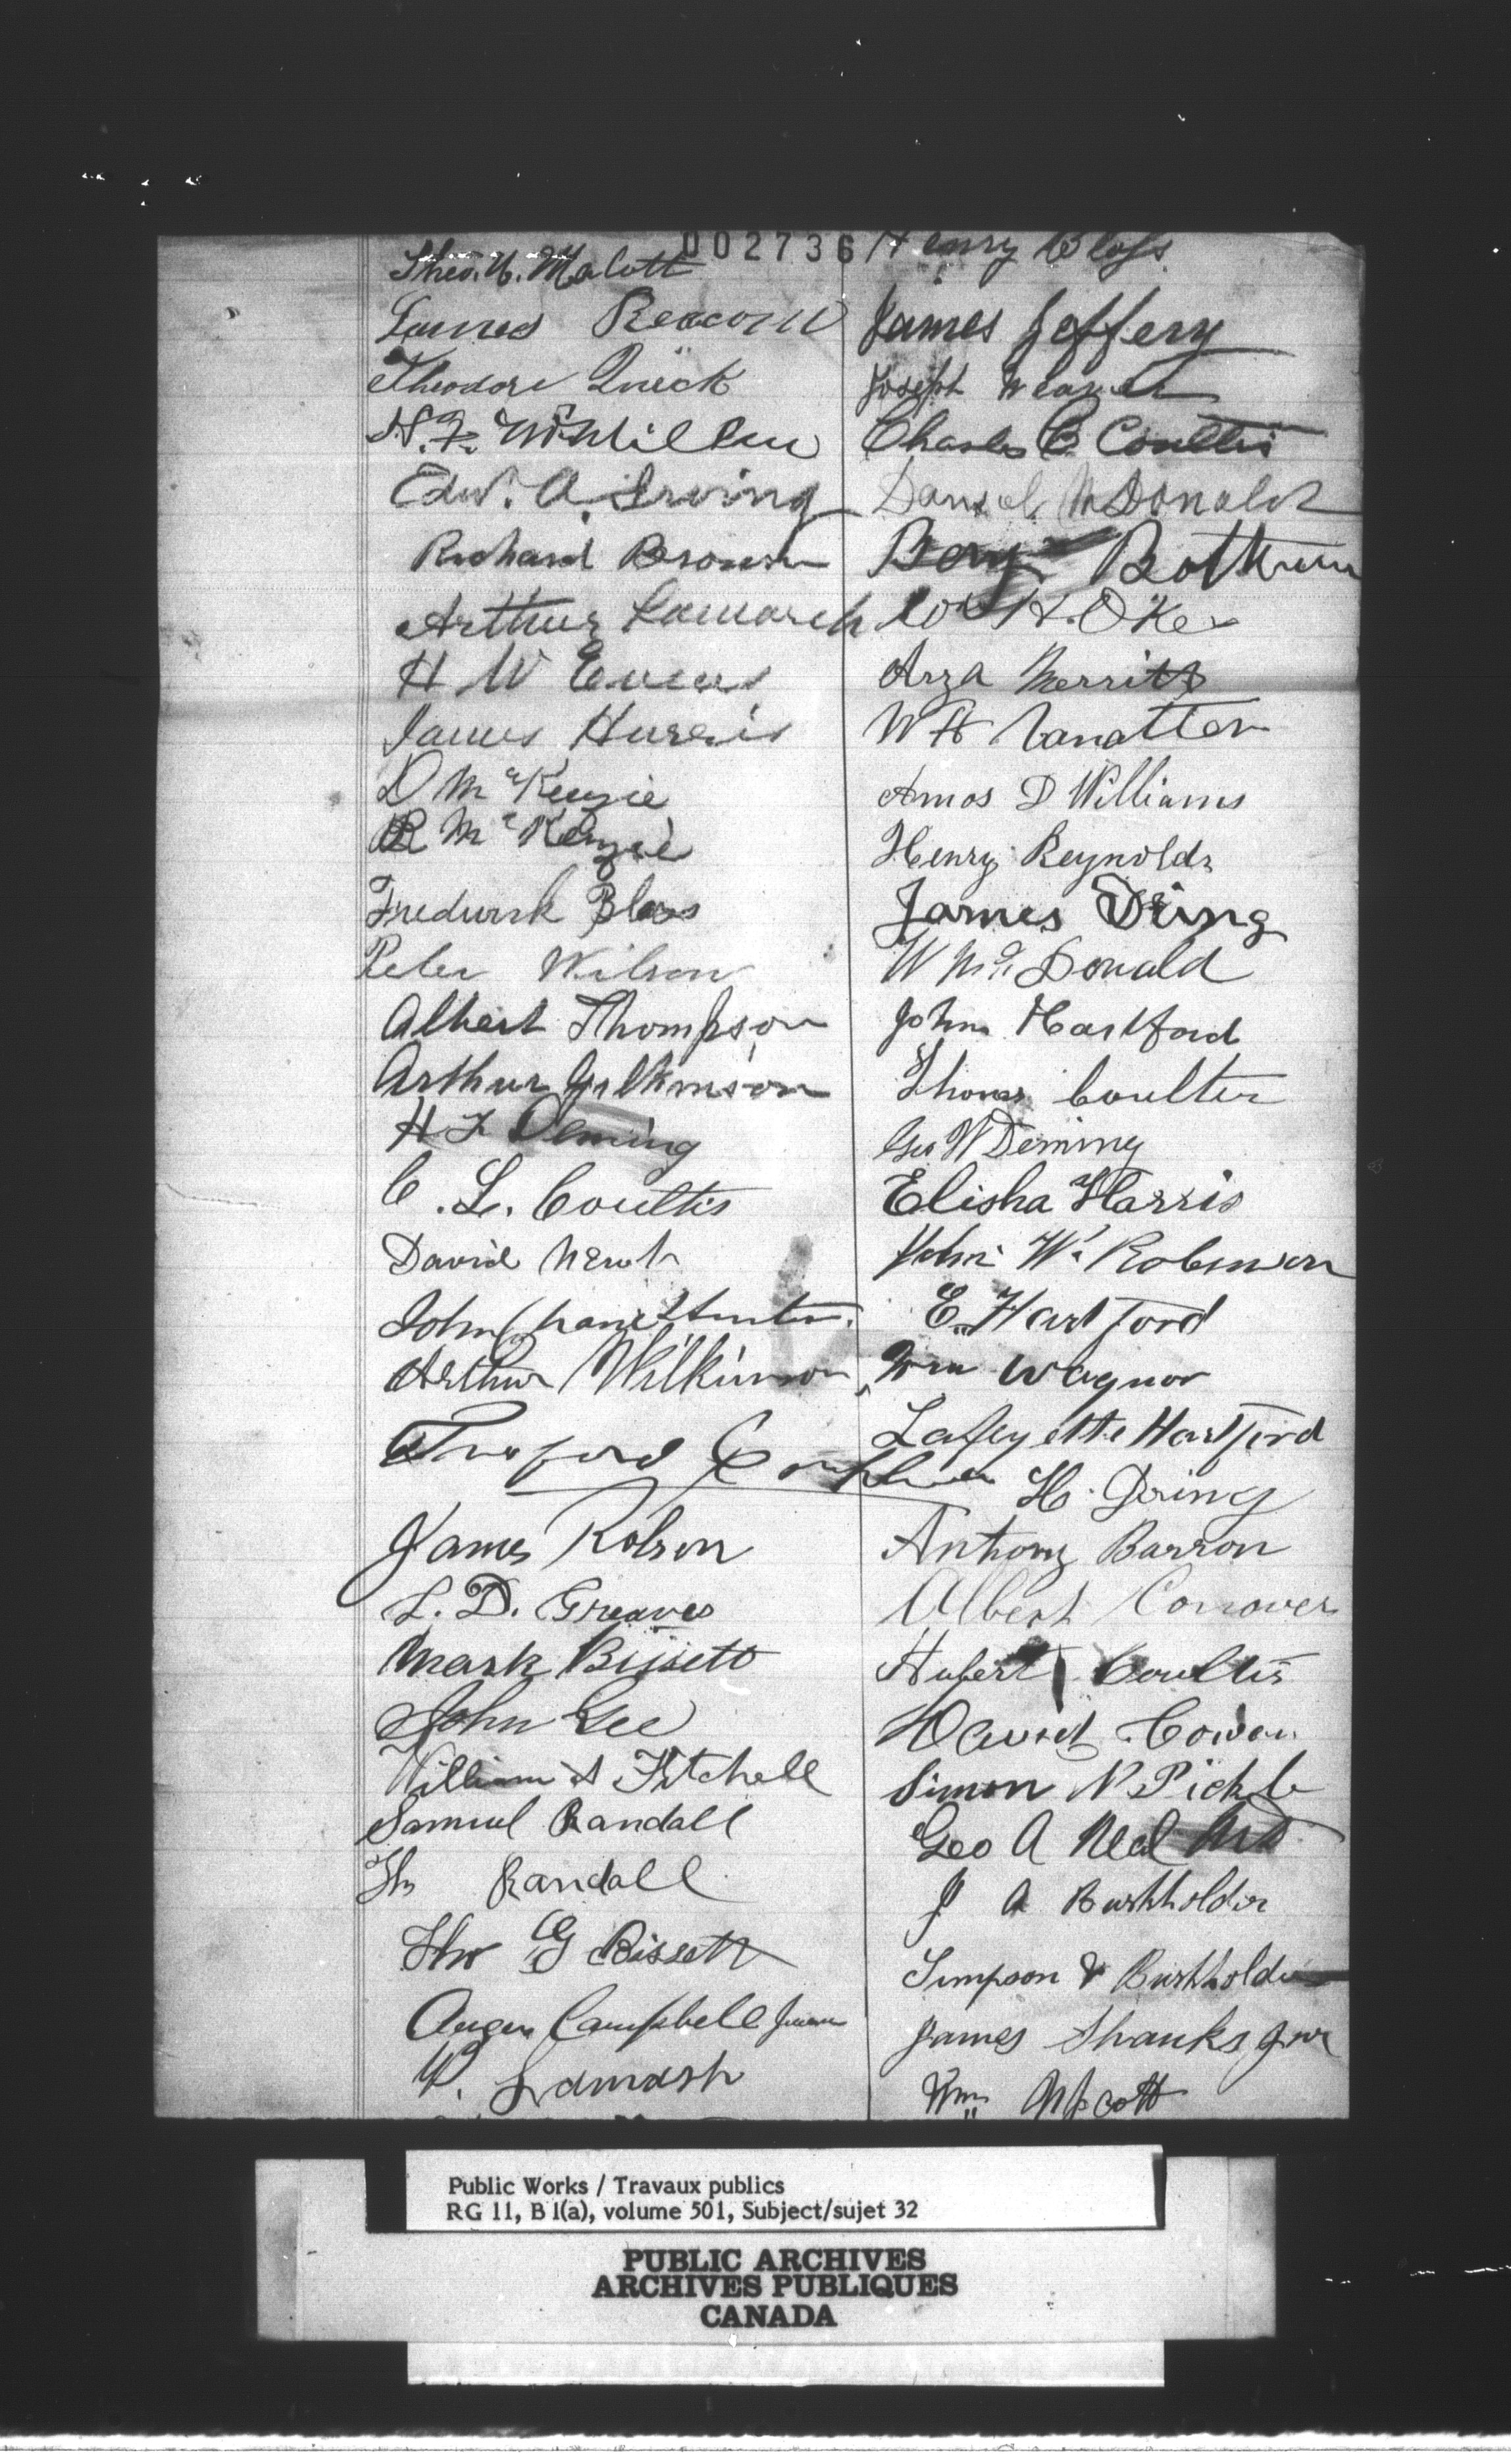 002736
Theo. N. Malott
James Beacom
Theodore Quick
Edw. A. Irving
Richard Brown
Arthur Lamarsh
H W Evans
James Harris
D McKenzie
R McKenzie
Frederick Blars
Peter Wilson
Albert Thompson
Arthur Gilkinson
H F Deming
C. L. Coultis
David
John Hunter
Arthur Wilkinson
James Robson
L. D. Greaves
Mark Bissett
John Gee
William A Fitchell
Samuel Randall
Randall
G Bissett
Campbell
Lamarsh
Henry Bloss
James Jeffery
Joseph Weaver
Charles C. Coultis
Daniel McDonald
H. Oke
Arza Merritt
W H Vanatter
Amos D Williams
Henry Reynolds
James Dring
W Mc. Donald
John Hartford
Thomas Coulter
Geo W Deming
Elisha Harris
John W. Robinson
E. Hartford
Wm Wagner
Lafayette Hartford
H. Dring
Anthony Barron
Albert Conover
Hubert Coultis
David Cowan
Simon N. Pickle
Geo A Neal MD
J A Burkholder
Simpson Burkholder
James Shanks Jnr
Wm. Scott
Public Works / Travaux publics
RG 11, B 1(a), volume 501, Subject/sujet 32
PUBLIC ARCHIVES
ARCHIVES PUBLIQUES
CANADA